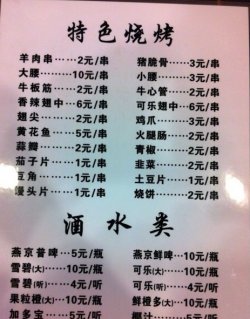 特色烧烤
羊肉串……2元/串 猪脆骨……3元/串
大腰……10元/串 小腰……3元/串
牛板筋……2元/串 牛心管……2元/串
香辣翅中…6元/串 可乐翅中…6元/串
翅尖……2元/串 鸡爪……3元/串
黄花鱼……5元/串 火腿肠……2元/串
蒜瓣……2元/串 青椒……2元/串
茄子片……1元/串 韭菜……2元/串
豆角……1元/串 土豆片……1元/串
馒头片……1元/串 烧饼……2元/串
酒水类
燕京普啤…5元/瓶 燕京鲜啤…10元/瓶
雪碧(大)…10元/瓶 可乐(大)…10元/瓶
雪碧(听)…4元/听 可乐(听)…4元/听
果粒橙(大)10元/瓶 鲜橙多(大)10元/瓶
加多宝……5元/听 椰汁……5元/听